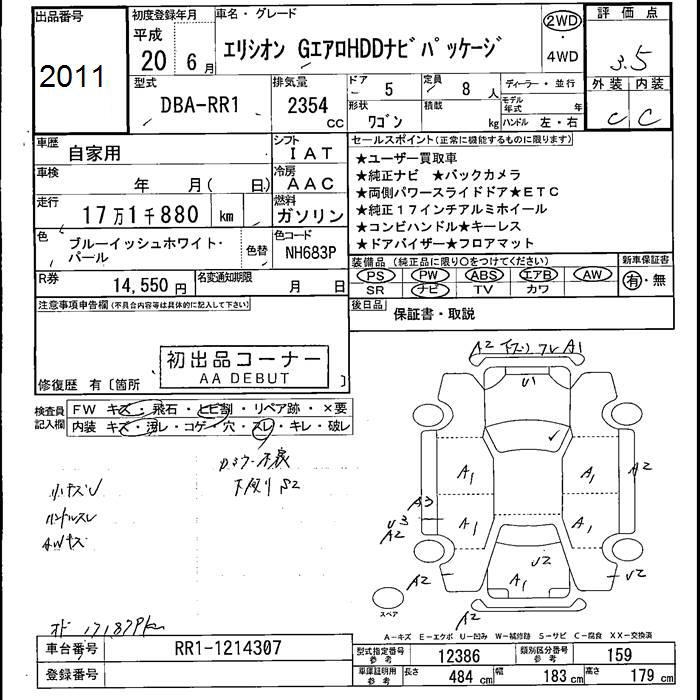 出品番号
2011
初度登録年月
平成
20年 6月
車名・グレード
エリシオン GエアロHDDナビパッケージ
2WD
・
4WD
評価点
3.5
型式
DBA-RR1
排気量
2354
CC
ドア
5
定員
8人
ディーラー・並行
形状
ワゴン
積載
kg
モデル年式
年
ハンドル 左・右
外装 内装
C C
車歴
自家用
シフト
IAT
車検
年 月( 日)
冷房
AAC
走行
17万1千880 km
燃料
ガソリン
色
ブルーイッシュホワイト・
パール
色替
色コード
NH683P
R券
14,550円
名変通知期限
月 日
セールスポイント(正常に機能するものに限ります)
★ユーザー買取車
★純正ナビ ★バックカメラ
★両側パワースライドドア★ETC
★純正17インチアルミホイール
★コンビハンドル★キーレス
★ドアバイザー★フロアマット
装備品(純正品に限り○をつけてください)
新車保証書
PS PW ABS エアB AW
SR ナビ TV カワ
有・無
後日品
保証書・取説
注意事項申告欄(不具合内容等は具体的に記入して下さい)
初出品コーナー
AA DEBUT
修復歴 有〔箇所 〕
検査員
記入欄
FW キズ・飛石・ヒビ割・リペア跡・×要
内装 キズ・汚レ・コゲ・穴・スレ・キレ・破レ
小キズU
ハンドルスレ
AWキズ
下廻りS2
A2 A1
U1
A1 A1 A2
A3
U3
A2
A1 A1
A2
U2
A1
U2
A2
スペア
A-キズ E-エクボ U-凹み W-補修跡 S-サビ C-腐食 XX-交換済
車台番号
RR1-1214307
登録番号
型式指定番号
参考
12386
類別区分番号
参考
159
車庫証明用
参考
長さ
484 cm
幅
183 cm
高さ
179 cm